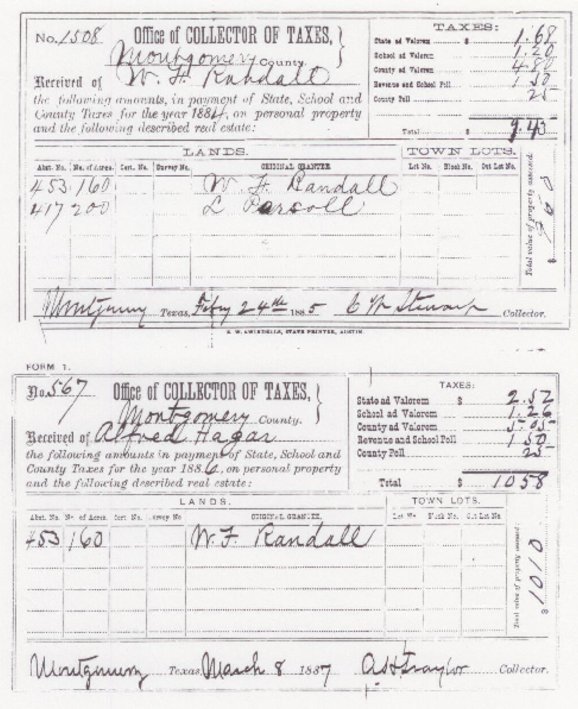 No. 1508 Office of COLLECTOR OF TAXES,
Montgomery County.
Received of W. F. Randall
the following amounts, in payment of State, School and
County Taxes for the year 1884, on personal property
and the following described real estate:
TAXES:
State ad Valorem $ 1.68
School ad Valorem 1.20
County ad Valorem 4.80
Revenue and School Poll 1.50
County Poll 25
Total $ 9.43
LANDS. TOWN LOTS.
Abst. No. No. of Acres. Cert. No. Survey No. ORIGINAL GRANTEE. Lot No. Block No. Out Lot No.
453 160 W. F. Randall
417 200 L Parsoll
Total value of property assessed.
$
Montgomery Texas, Feby 24th 1885 Collector.
STATE PRINTER, AUSTIN.
FORM 1.
No. 567 Office of COLLECTOR OF TAXES,
Montgomery County.
Received of Alfred Hagar
the following amounts in payment of State, School and
County Taxes for the year 1886, on personal property
and the following described real estate:
TAXES:
State ad Valorem $ 2.52
School ad Valorem 1.26
County ad Valorem 5.05
Revenue and School Poll 1 50
County Poll 25
Total $ 1058
LANDS. TOWN LOTS.
Abst. No. No. of Acres. Cert No. Survey No ORIGINAL GRANTEE. Lot No. Block No. Out Lot No.
453 160 W. F. Randall
Total value of property assessed.
$ 1010
Montgomery Texas, March 8 1887 A H Traylor Collector.